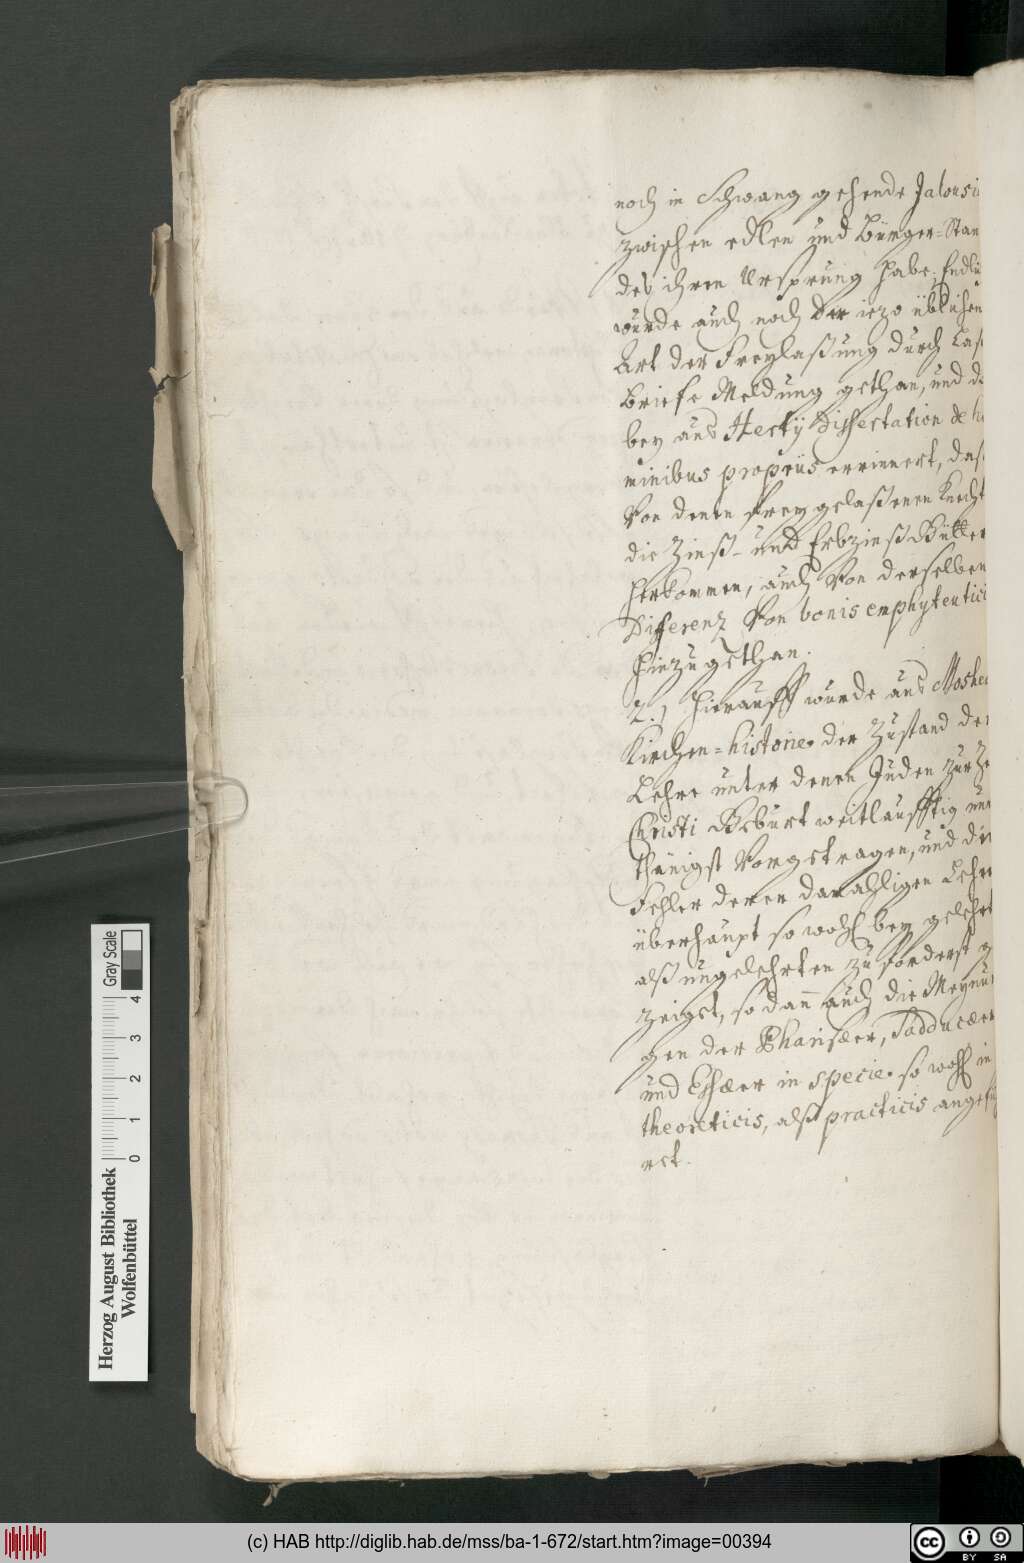 noch in Schwang gehende Jalousi
zwischen edlen und Bürger=Stan
des ihren Ursprung habe, Endli
wurde auch noch der iezo üblichen
Art der Freylaßung durch Laß
Briefe Meldung gethan, und da
bey aus Hertij Dissertation de ho
minibus propriis errinnert, daß
von denen freygelaßenen Knecht
die Zinß- und Erbzinß Gütter
herkommen, auch von derselben
Differenz von bonis emphyteutici
hinzugethan.
2.) Hierauff wurde aus Moshei
Kirchen=historie der Zustand der
Lehre unter denen Juden zur Ze
Christi Geburt weitläufftig unt
thänigst vorgetragen, und die
Fehler derer damahligen Lehre
überhaupt so wohl bey gelehrt
alß ungelehrten zuforderst g
zeiget, so dann auch die Meynun
gen der Pharisæer, Sadducæer
und Essæer in specie so wohl in
theoreticis, alß practicis angefü
ret.
Herzog August Bibliothek
Wolfenbüttel
Gray Scale
0 1 2 3 4
(c) HAB http://diglib.hab.de/mss/ba-1-672/start.htm?image=00394
cc BY SA